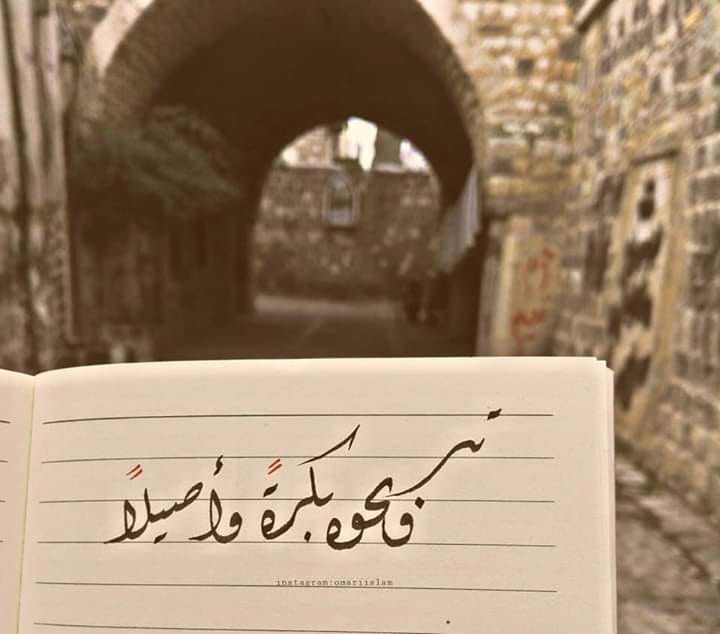 وسبحوه بكرةً وأصيلاً
instagram:omariislam